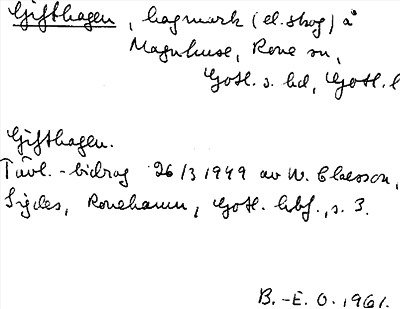 Gifthagen, hagmark (el. skog) å
Magnhuse, Rone sn,
Gotl. s. hd, Gotl. l
Gifthagen.
Tävl.-bidrag 26/3 1949 av W. Claesson,
Sigdes, Ronehamn, Gotl. hbf., s. 3.
B.-E. O. 1961.